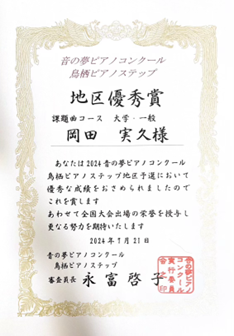 音の夢ピアノコンクール
鳥栖ピアノステップ
地区優秀賞
課題曲コース 大学・一般
岡田 実久様
あなたは2024音の夢ピアノコンクール
鳥栖ピアノステップ地区予選において
優秀な成績をおさめられましたので
これを賞します
あわせて全国大会出場の栄誉を授与し
更なる努力を期待いたします
2024年7月21日
音の夢ピアノコンクール
鳥栖ピアノステップ
審査員長 永富啓子
音の夢ピアノ
コンクール
実行委員
会之印